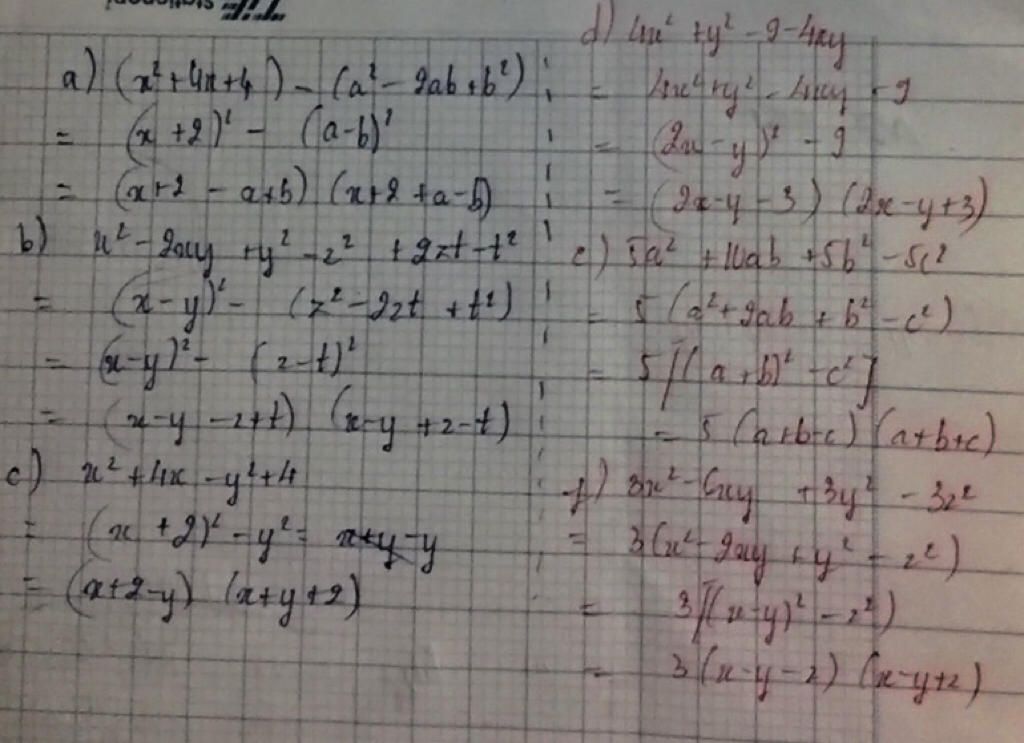 a) (x² + 4x + 4) - (a² - 2ab + b²)
= (x + 2)² - (a - b)²
= (x + 2 - a + b) (x + 2 + a - b)
b) x² - 2xy + y² - z² + 2zt - t²
= (x - y)² - (z² - 2zt + t²)
= (x - y)² - (z - t)²
= (x - y - z + t) (x - y + z - t)
c) x² + 4x - y² + 4
= (x + 2)² - y² = x + y - y
= (x + 2 - y) (x + y + 2)
d) 4x² + y² - 9 - 4xy
= 4x² + y² - 4xy - 9
= (2x - y)² - 9
= (2x - y - 3) (2x - y + 3)
e) 5a² + 10ab + 5b² - 5c²
= 5 (a² + 2ab + b² - c²)
= 5 [(a + b)² - c²]
= 5 (a + b - c) (a + b + c)
f) 3x² - 6xy + 3y² - 3z²
= 3 (x² - 2xy + y² - z²)
= 3 [(x - y)² - z²)
= 3 (x - y - z) (x - y + z)